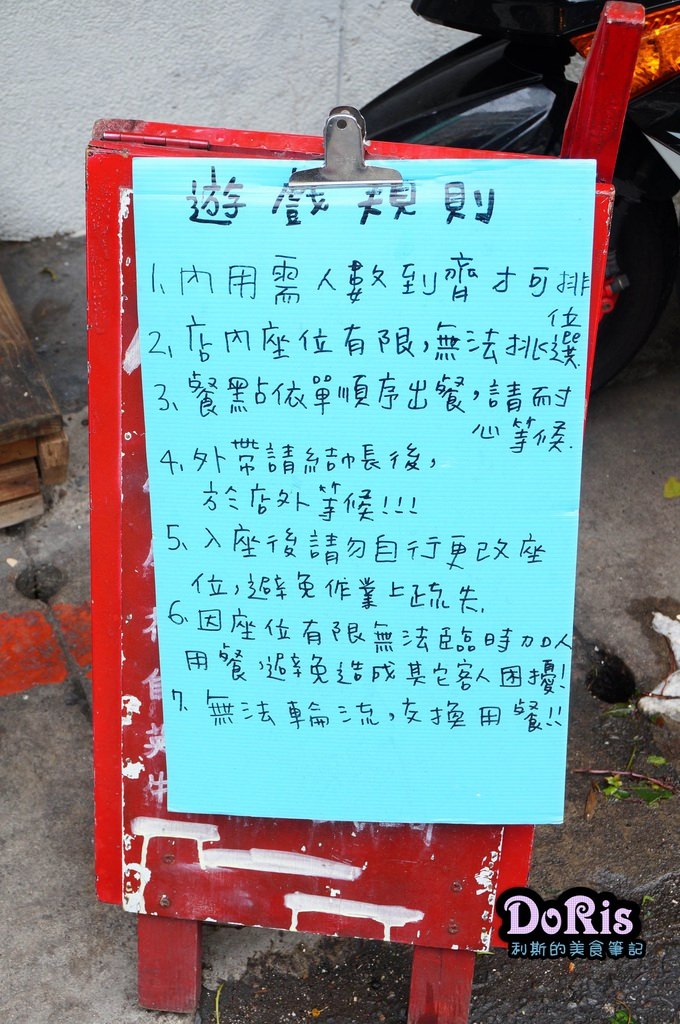 遊戲規則
1、內用需人數到齊才可排
位
2、店內座位有限,無法挑選
3、餐點依單順序出餐,請耐
心等候
4、外帶請結帳後,
於店外等候!!!
5、入座後請勿自行更改座
位,避免作業上疏失
6、因座位有限無法臨時加人
用餐,避免造成其它客人困擾!
7、無法輪流,交換用餐!!
DoRis
利斯的美食筆記